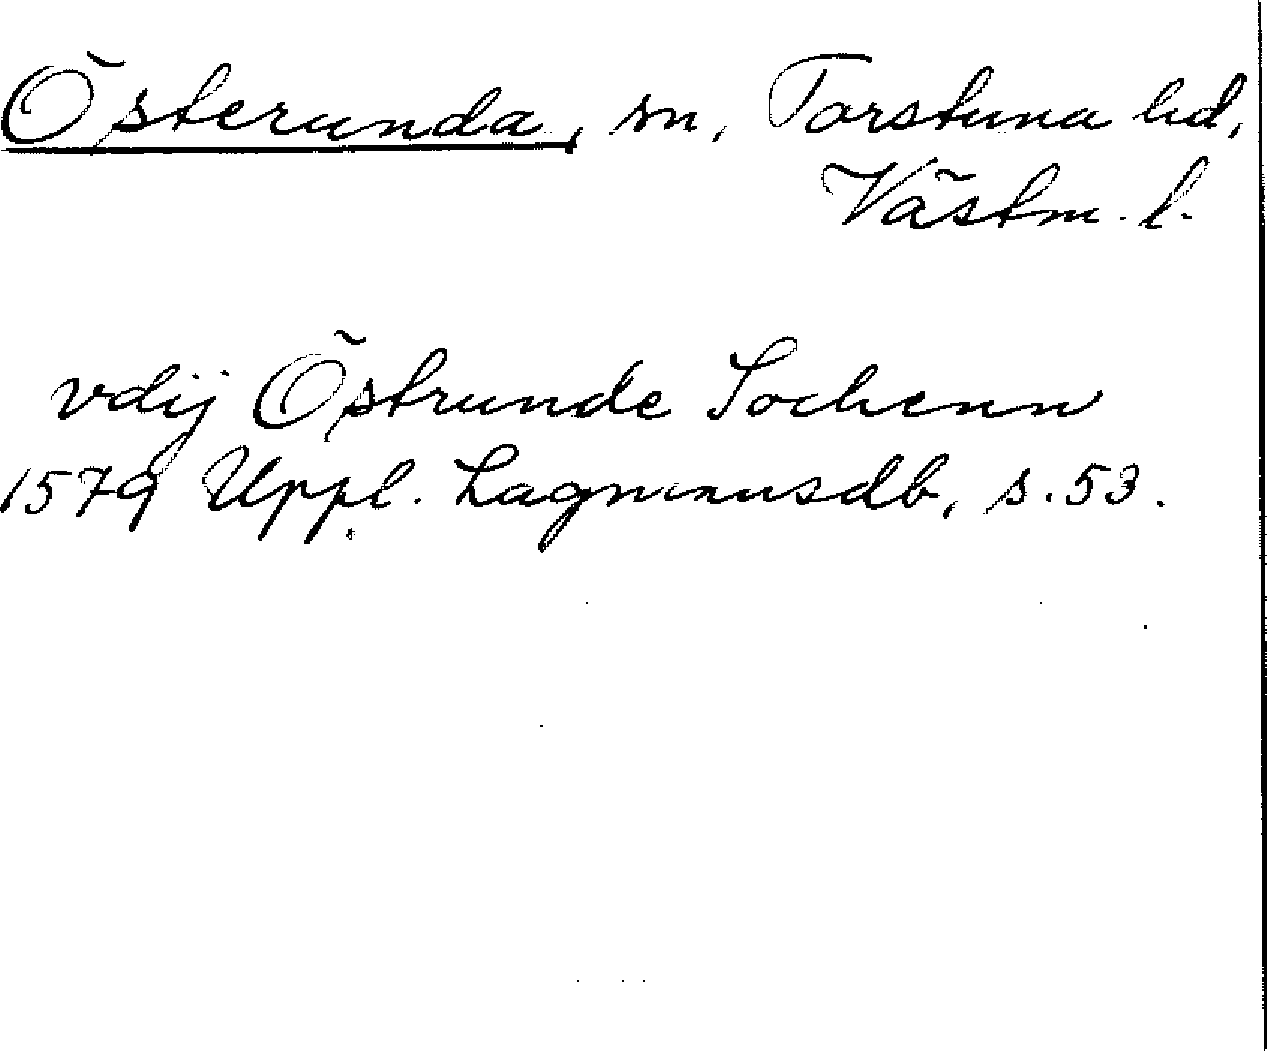 Österunda, sn, Torstuna hd,
Västm. l.
vdij Östrunde Sochenn
1579 Uppl. Lagmansdb, s. 53.